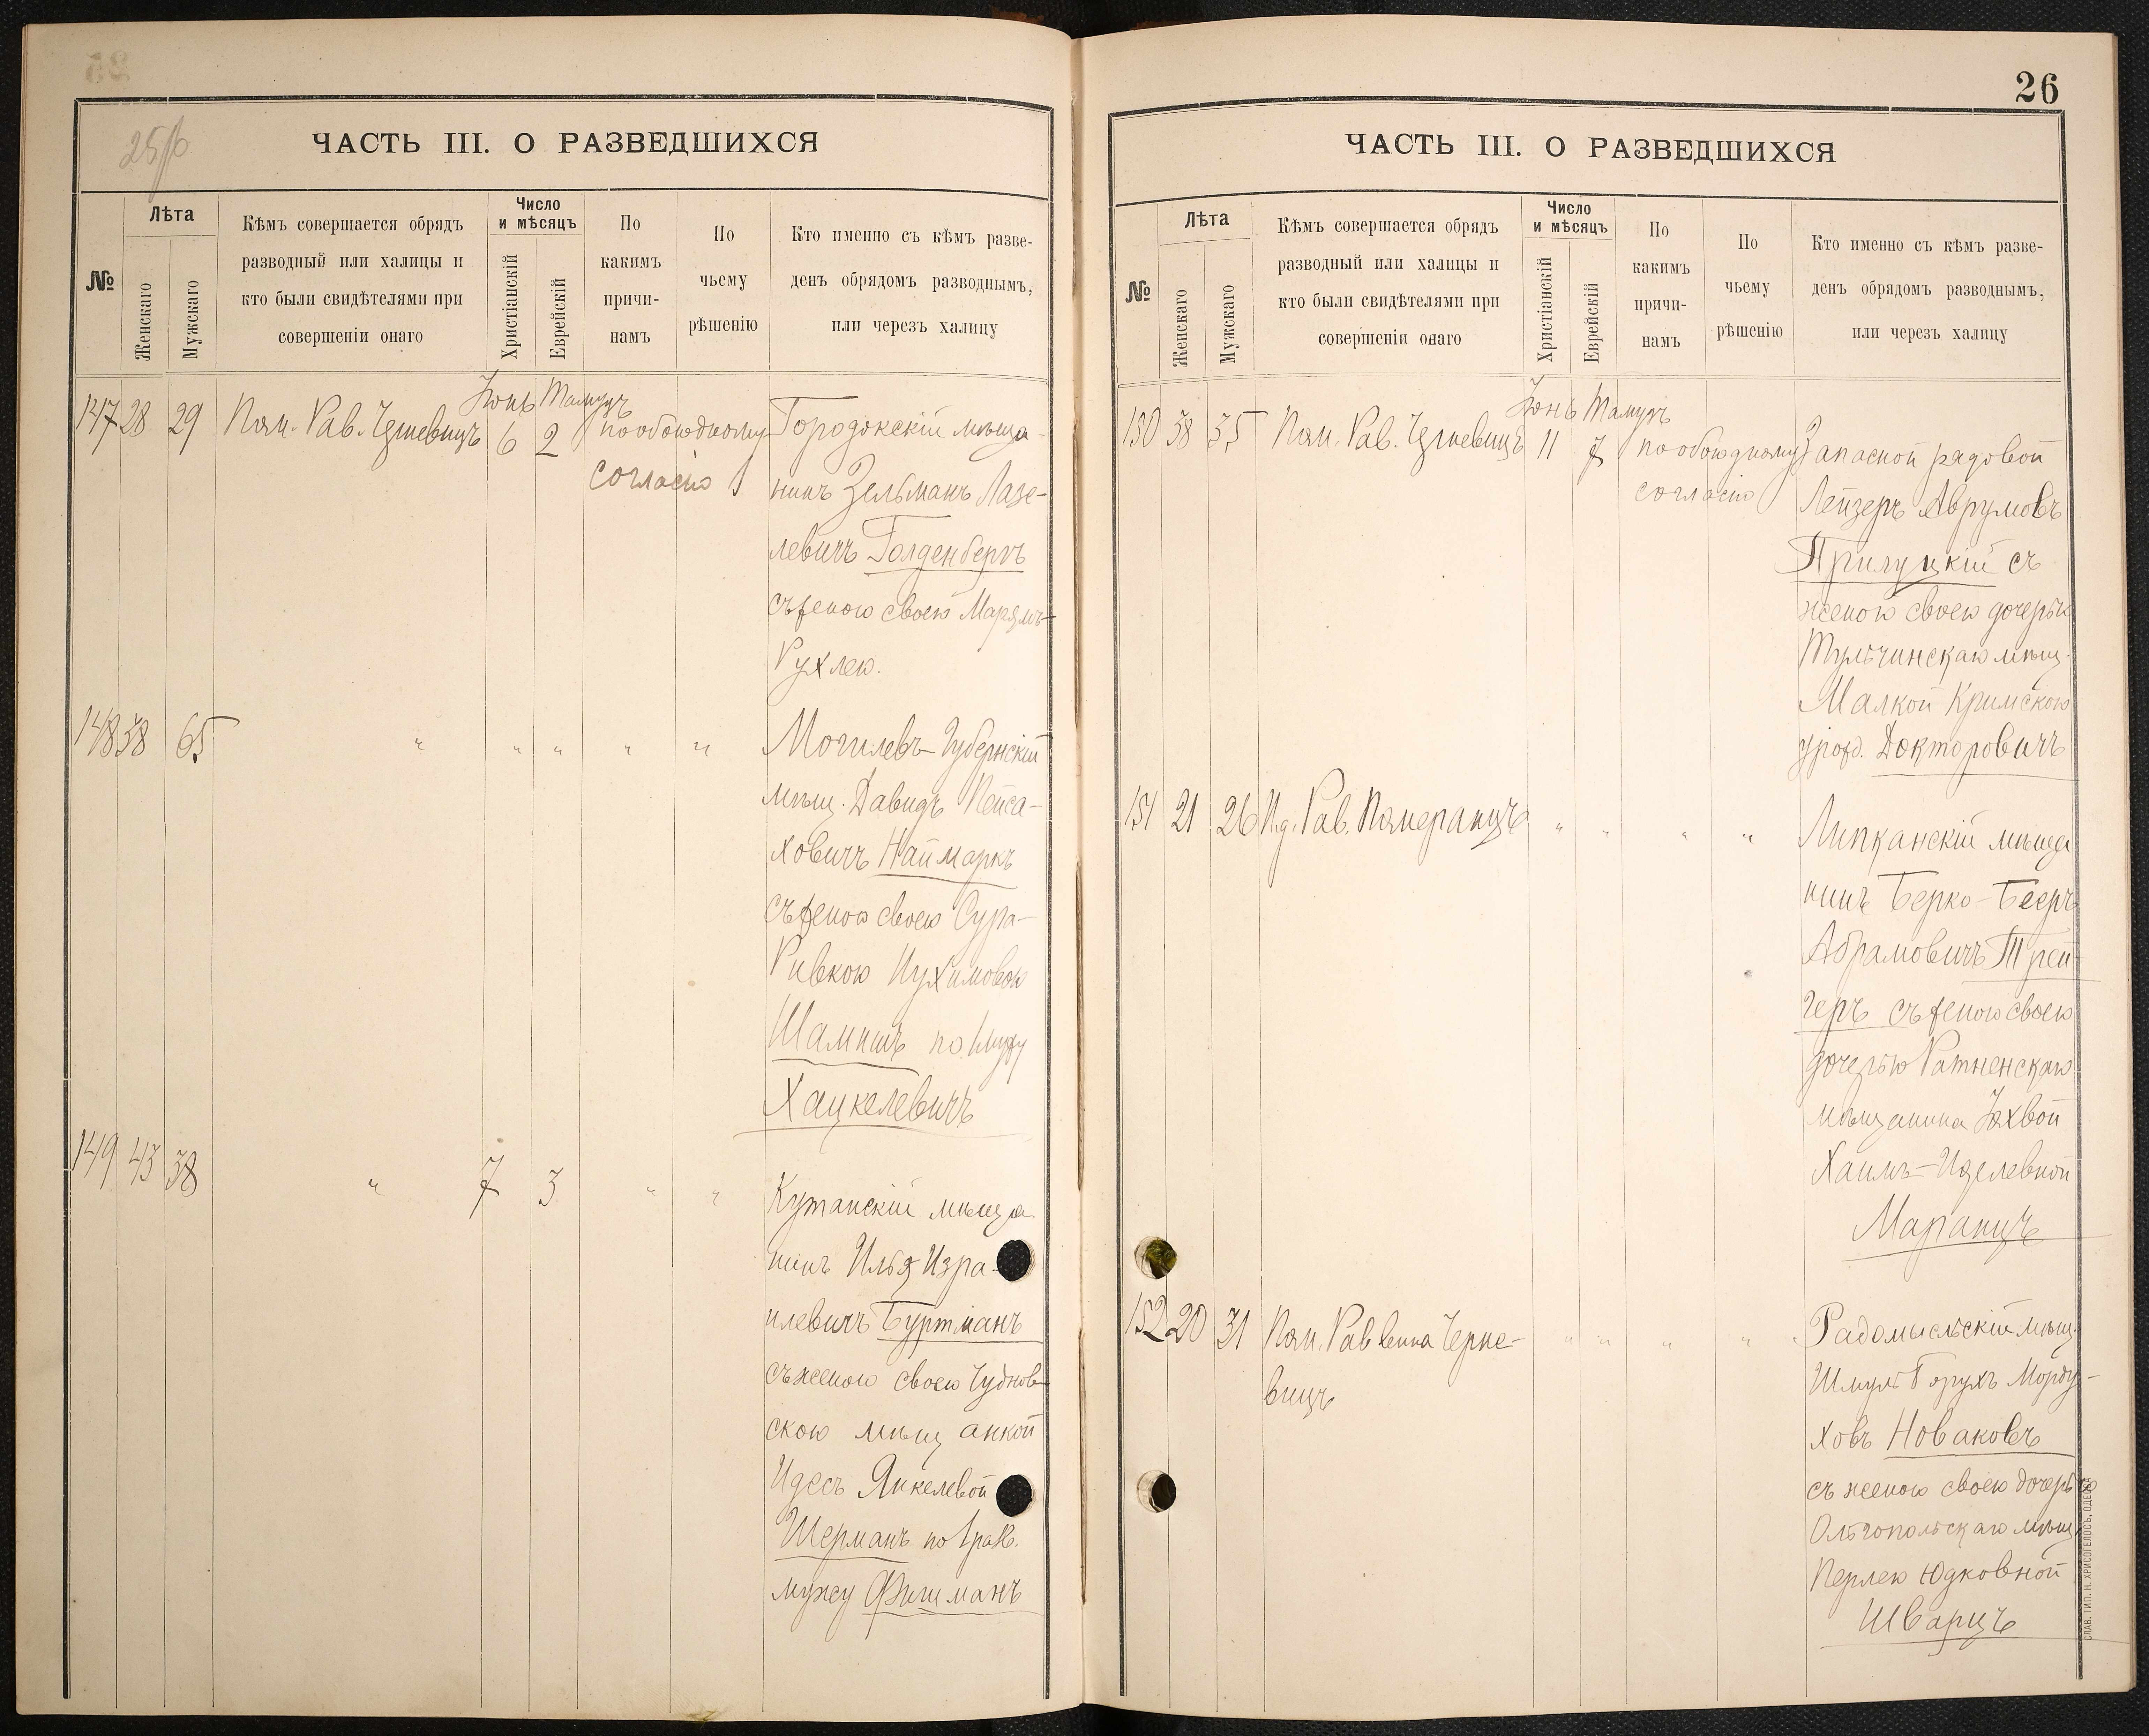 25/б
ЧАСТЬ III. О РАЗВЕДШИХСЯ
№
Лѣта
Женскаго
Мужскаго
Кѣмъ совершается обрядъ
разводный или халицы и
кто были свидѣтелями при
совершеніи онаго
Число
и мѣсяцъ
Христіанскій
Еврейскій
По
какимъ
причи-
намъ
По
чьему
рѣшенію
Кто именно съ кѣмъ разве-
денъ обрядомъ разводнымъ,
или черезъ халицу
Іюнь Тамузъ
147 28 29 Пом. Рав. Черневицъ 6 2 по обоюдному Городокскій мѣща-
согласію нинъ Зельманъ Лазе-
левичъ Голденбергъ
съ женою своею Марямъ-
Рухлею.
148 38 65 " " " " " Могилевъ-Губернскій
мѣщ. Давидъ Пейса-
ховичъ Наймаркъ
съ женою своею Сура-
Ривкою Нухимовою
Шамишъ по мужу
Хацкелевичъ
149 43 38 " 7 3 " " Кутаискій мѣща
нинъ Илья Изра-
илевичъ Буртманъ
съ женою своею Чуднов-
скою мѣщанкой
Идесъ Янкелевой
Шерманъ по 1 брак.
мужу Фишманъ
26
ЧАСТЬ III. О РАЗВЕДШИХСЯ
№
Лѣта
Женскаго
Мужскаго
Кѣмъ совершается обрядъ
разводный или халицы и
кто были свидѣтелями при
совершеніи онаго
Число
и мѣсяцъ
Христіанскій
Еврейскій
По
какимъ
причи-
намъ
По
чьему
рѣшенію
Кто именно съ кѣмъ разве-
денъ обрядомъ разводнымъ,
или черезъ халицу
Іюнь Тамузъ
150 38 35 Пом. Рав. Черневицъ 11 7 по обоюдному Запасной рядовой
согласію Лейзеръ Аврумовъ
Прилуцкій съ
женою своею дочерью
Тульчинскаго мѣщ.
Малкой Кримскою
урожд. Докторовичъ
151 21 26 И.д. Рав. Померанцъ " " " " Липканскій мѣща
нинъ Берко-Бееръ
Абрамовичъ Трей-
геръ съ женою своею
дочерью Ратненскаго
мѣщанина Юхвой
Хаимъ-Ицелевной
Маранцъ
152 20 31 Пом. Раввина Черне- " " " " Радомысльскій мѣщ.
вицъ Шмуль Борухъ Морду-
ховъ Новаковъ
съ женою своею дочерью
Ольгопольскаго мѣщ.
Перлею Юдковной
Шварцъ
СЛАВ. ТИП. Н. ХРИСОГЕЛОСЪ, ОДЕССА